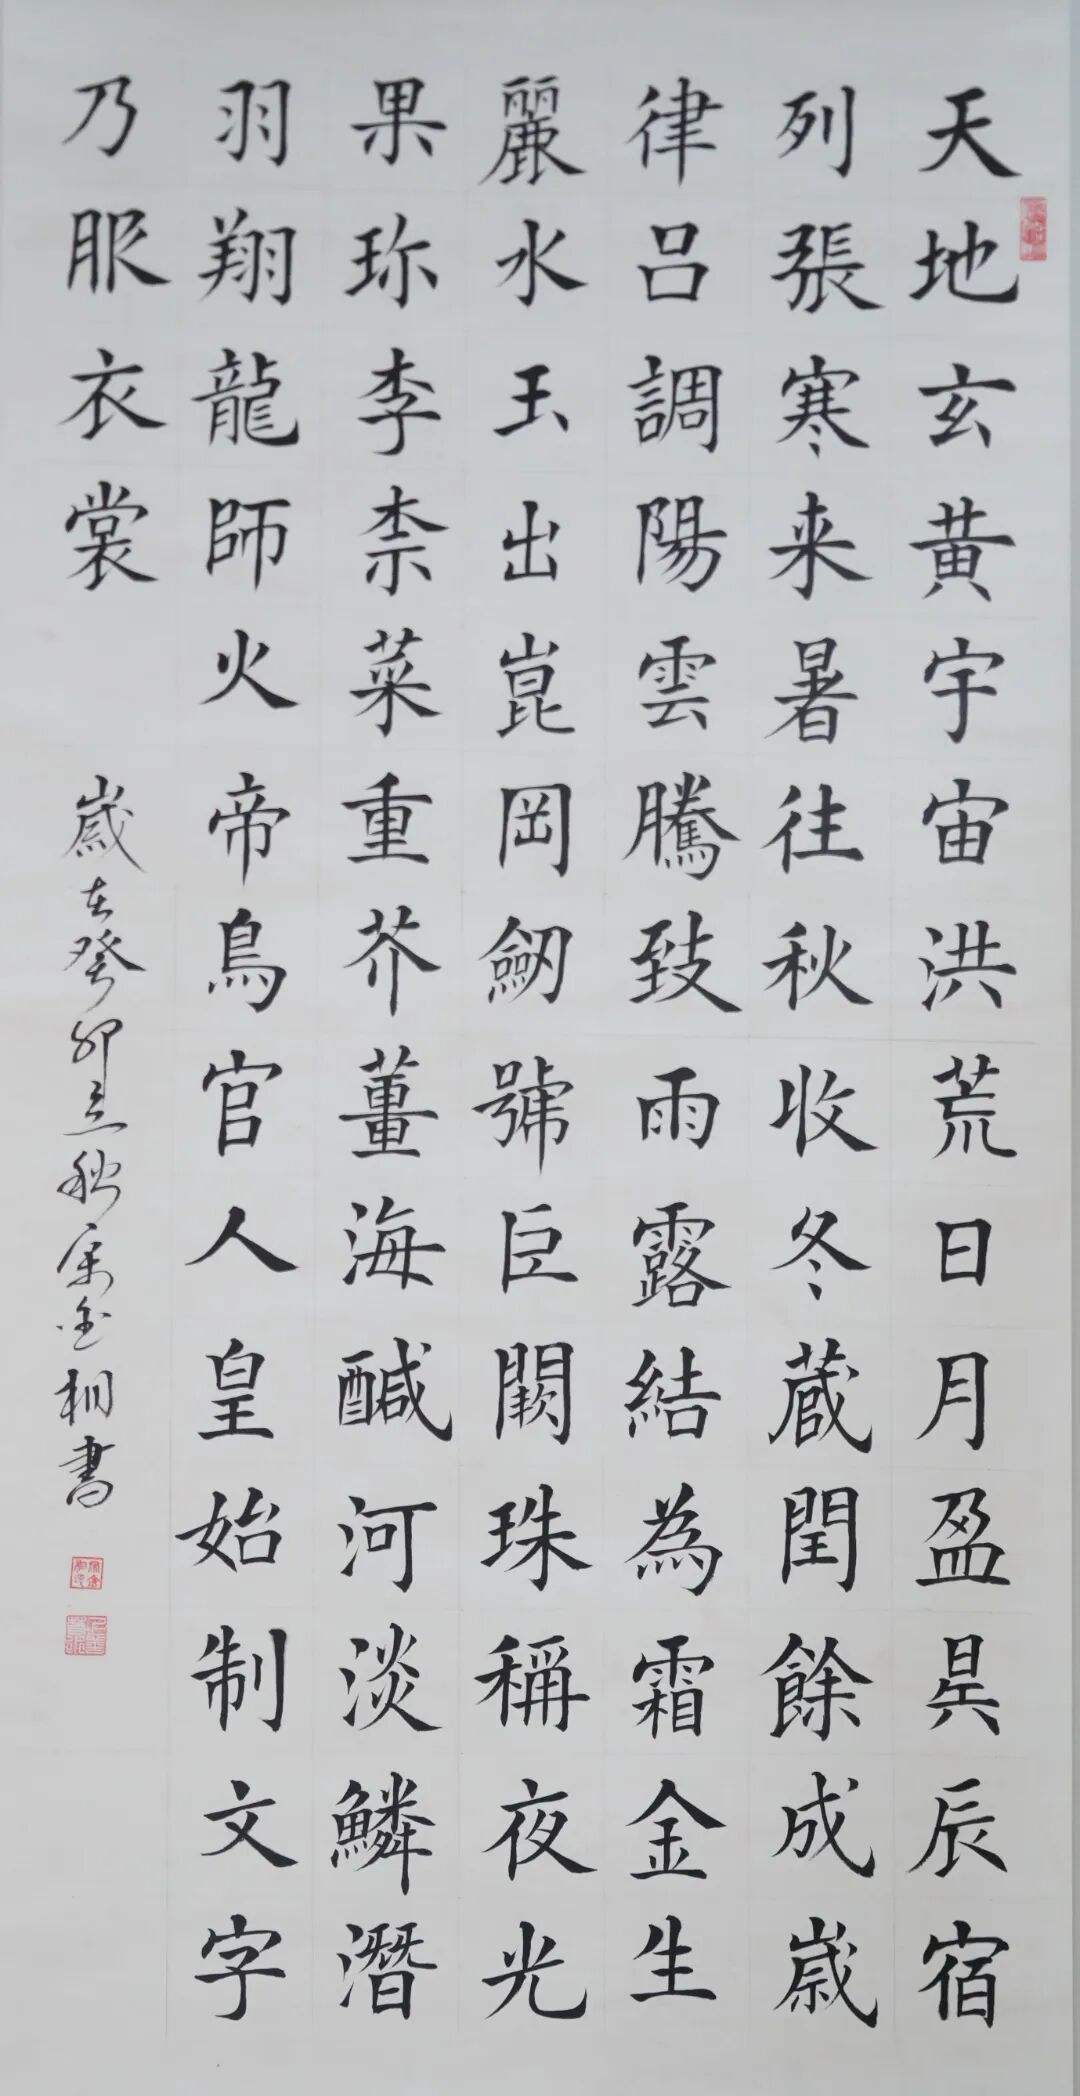 天地玄黃宇宙洪荒日月盈昃辰宿
列張寒来暑往秋收冬蔵閏餘成歲
律呂調陽雲騰致雨露結為霜金生
麗水玉出崑岡劒號巨闕珠稱夜光
果珎李柰菜重芥薑海醎河淡鱗潛
羽翔龍師火帝鳥官人皇始制文字
乃服衣裳
歲在癸卯立秋宋金桐書